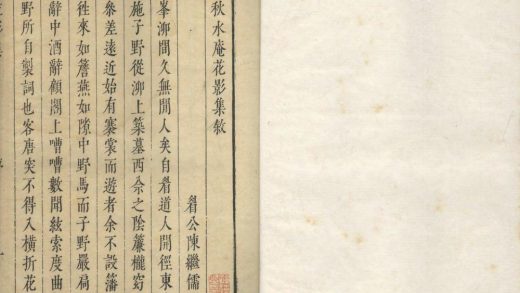 秋水庵花影集敘
眉公陳繼儒
峯泖間久無閒人矣自眉道人開徑東
施子野從泖上築墓西佘之陰簾櫳窈
參差遠近始有褰裳而遊者余不設藩
徃來如簷燕如隙中野馬而子野嚴扃
辭中酒辭顧閣上嘈嘈數聞絃索度曲
野所自製詞也客唐突不得入橫折花